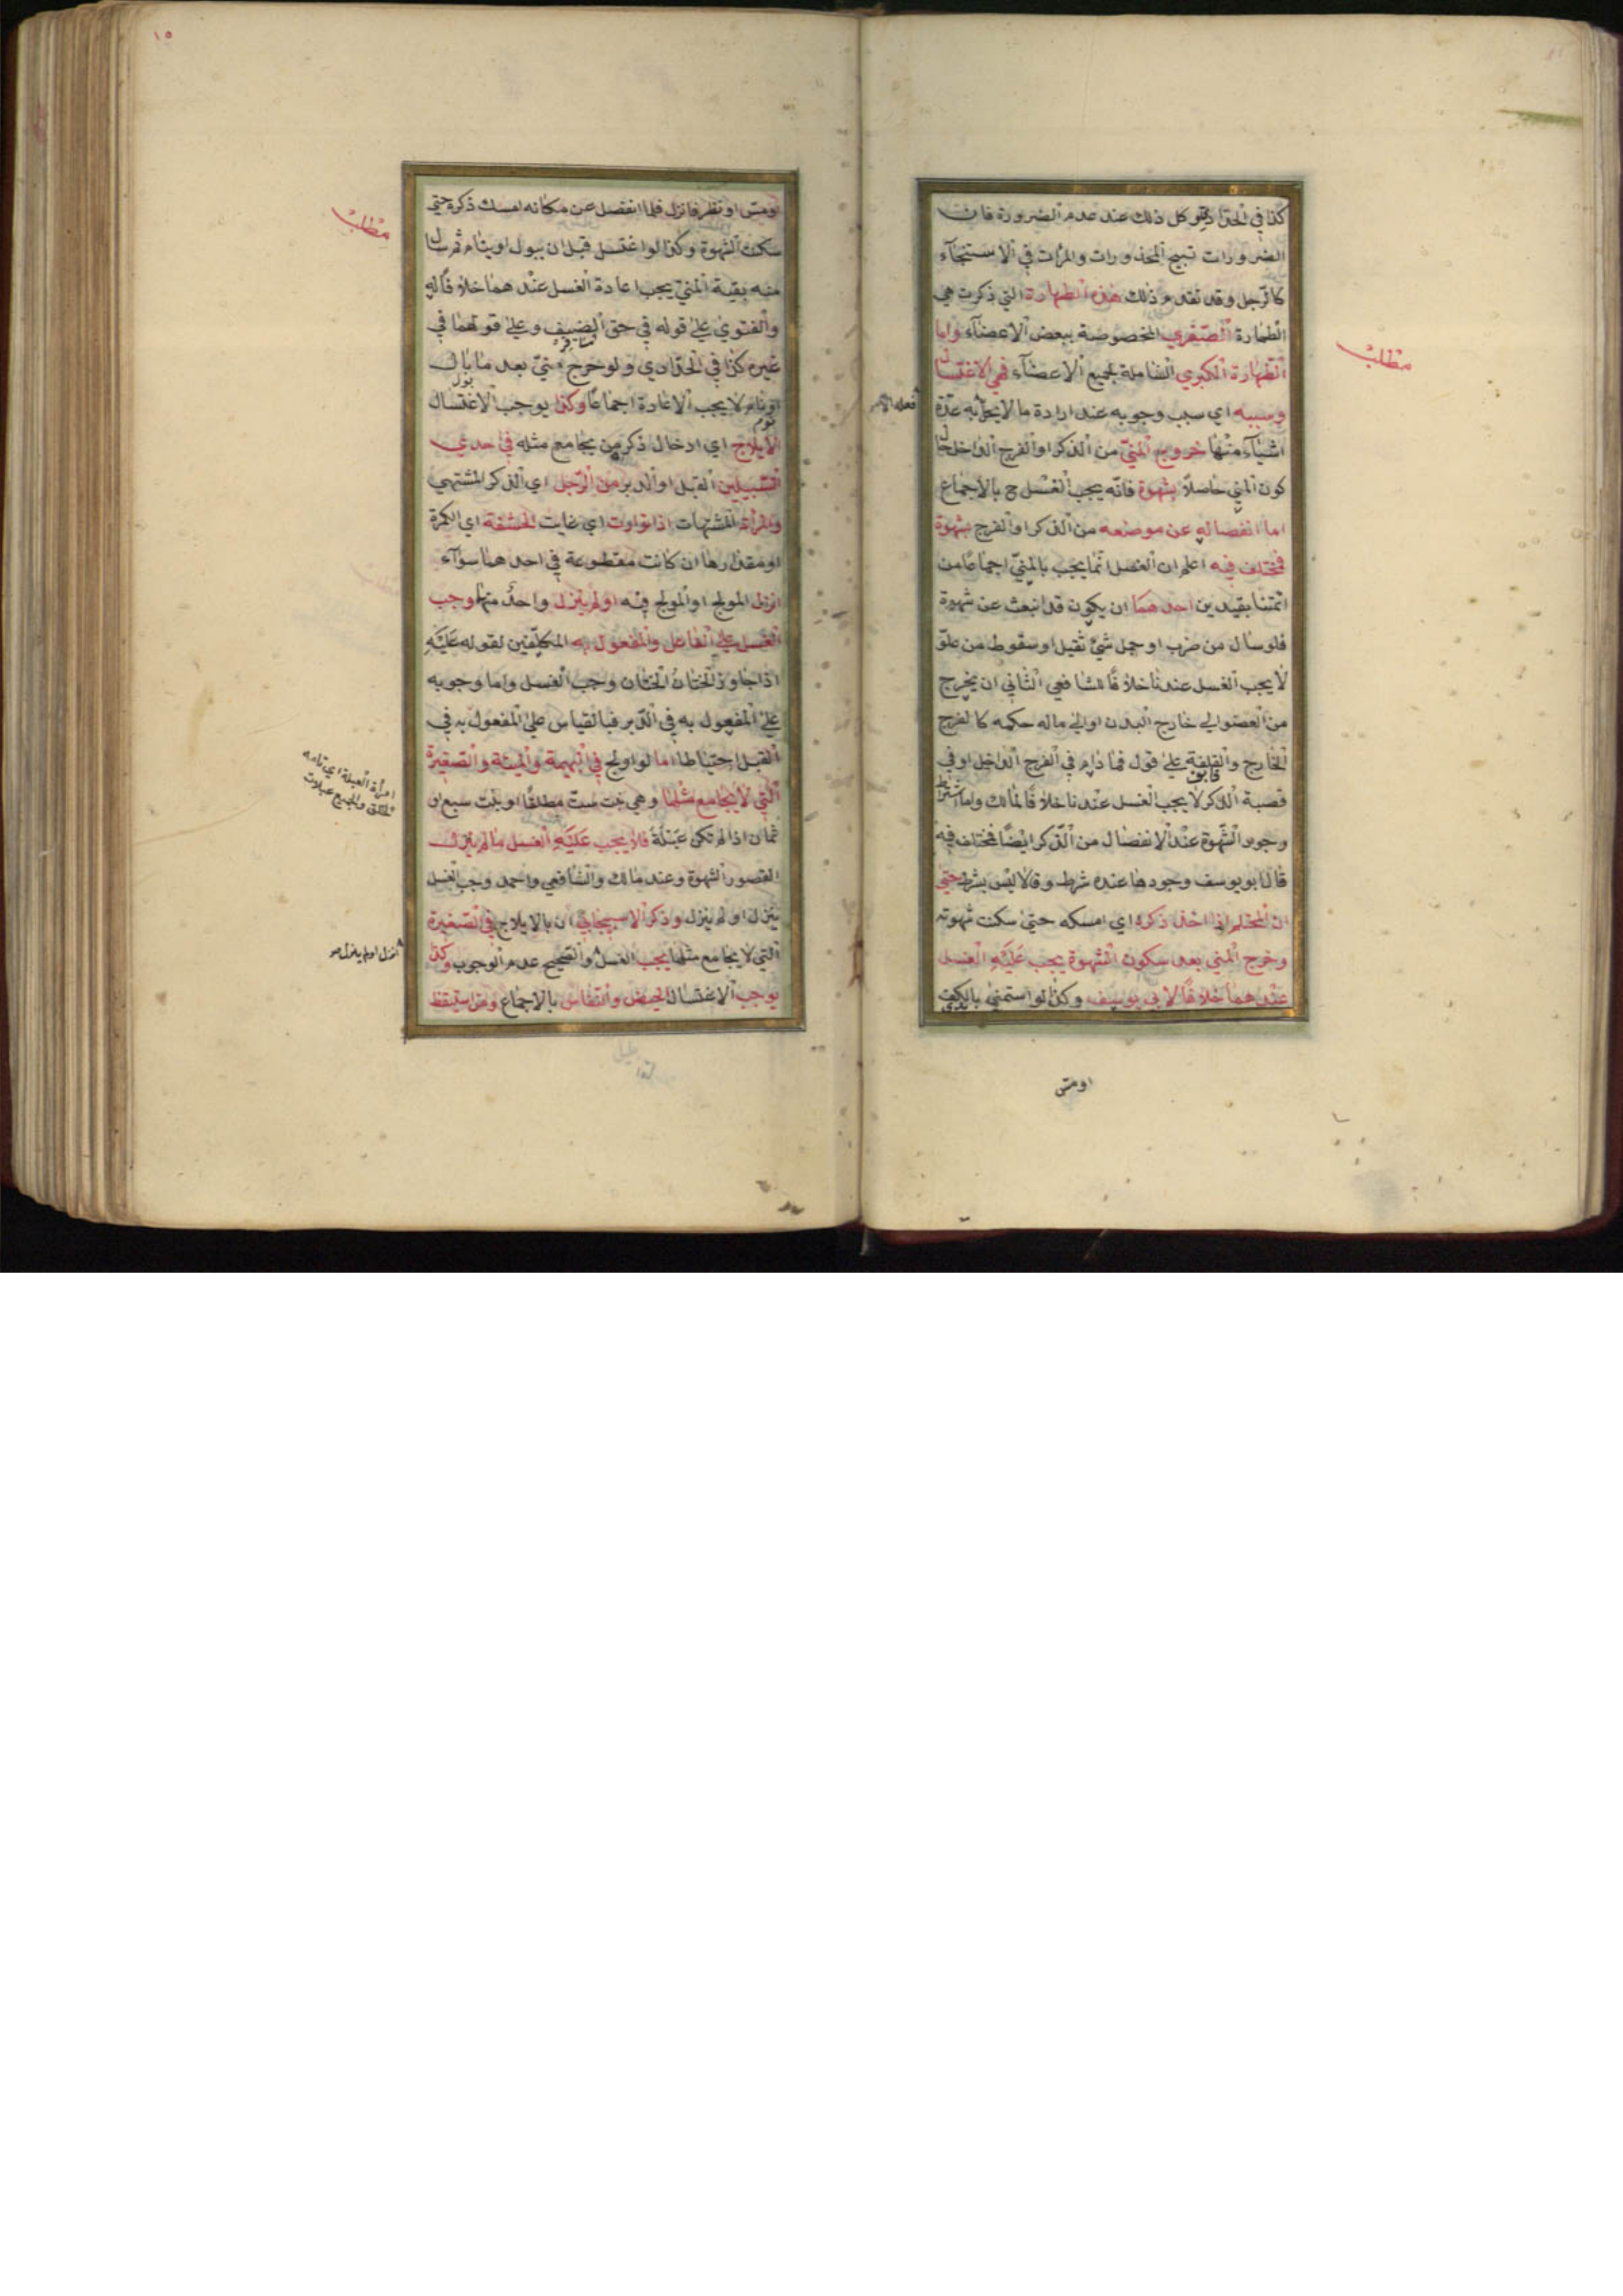 كذا في الحدادي وكل ذلك عند عدم الضرورة فان
الضرورات تبيح المحذورات والمرأت في الاستنجآء
كالرّجل وقد تقدم ذلك هذه الطهارة التي ذكرت هي
الطهارة الصّغري المخصوصة ببعض الاعضآء واما
الطهارة الكبري الشاملة بجميع الاعضآء فهي الاغتسال
وسببه اي سبب وجوبه عند ارادة ما لا يحل به عدّة
اشيآء منها خروج المنيّ من الذكر او الفرج الداخل حال
كون المني حاصلاً بشهوة فانّه يجب الغسل ح بالاجماع
اما انفصاله عن موضعه من الذكر او الفرج بشهوة
فمختلف فيه اعلم ان الغسل انما يجب بالمنيّ اجماعًا من
ائمتنا بقيدين احدهما ان يكون قد انبعث عن شهوة
فلو سال من ضرب او حمل شيئ ثقيل او سقوط من علوّ
لا يجب الغسل عندنا خلافًا للشافعي الثاني ان يخرج
من العضو الي خارج البدن او الي ماله حكمه كالفرج
الخارج والقلفة علي قول فما دام في الفرج الداخل او في
قصبة الذكر لا يجب الغسل عندنا خلافًا لمالك واما اشتراط
وجود الشّهوة عند الانفصال من الذّكر ايضًا فمختلف فيه
قال ابو يوسف وجودها عنده شرط وقالا ليس بشرط حتي
ان المحتلم اذا اخذ ذكره اي امسكه حتي سكنت شهوته
وخرج المني بعد سكون الشهوة يجب عَلَيْهِ الغسل
عندهما خلافًا لابي يوسف وكذا لو استمني بالكف
او مسّ
مطلب
او مسّ او نظر فانزل فلما انفصل عن مكانه امسك ذكره حتي
سكنت الشهوة وكذا لو اغتسل قبل ان يبول او ينام ثم سال
منه بقية المنيّ يجب اعادة الغسل عندهما خلافًا له
والفتوي علي قوله في حق الضيف وعلي قولهما في
غيره كذا في الحدّادي ولو خرج منيّ بعد ما بال
او نام لا يجب الاعادة اجماعًا وكذا يوجب الاغتسال
الايلاج اي ادخال ذكر من يجامع مثله في احدي
السّبيلين القبل او الدبر من الرّجل اي الذكر المشتهي
والمرأة المشتهات اذا توارت اي غابت الحشفة اي الكمرة
او مقدارها ان كانت مقطوعة في احدهما سوآء
انزل المولج او المولج فيه او لم ينزل واحد منهما وجب
الغسل علي الفاعل والمفعول به المكلّفين لقوله عَلَيْهِ
اذا جاوز الختانُ الختان وجب الغسل واما وجوبه
علي المفعول به في الدّبر فبالقياس علي المفعول به في
القبل احتياطا اما لو اولج في البهيمة والميتة والصّغيرة
الّتي لا يجامع مثلها وهي بنت ستّ مطلقًا او بنت سبع او
ثمان اذا لم تكن عَبْلَةً فلا يجب عَلَيْهِ الغسل ما لم ينزل
لقصور الشهوة وعند مالك والشافعي واحمد وجب الغسل
ينزل او لم ينزل وذكر الاسبيجابي ان بالايلاج في الصّغيرة
الّتي لا يجامع مثلها يجب الغسل والصّحيح عدم الوجوب وكذا
يوجب الاغتسال الحيض والنّفاس بالاجماع ومن استيقظ
مطلب
امرأة العبلة اي تامه
الخلق والجمع عبلات
انزل او لم ينزل
١٥